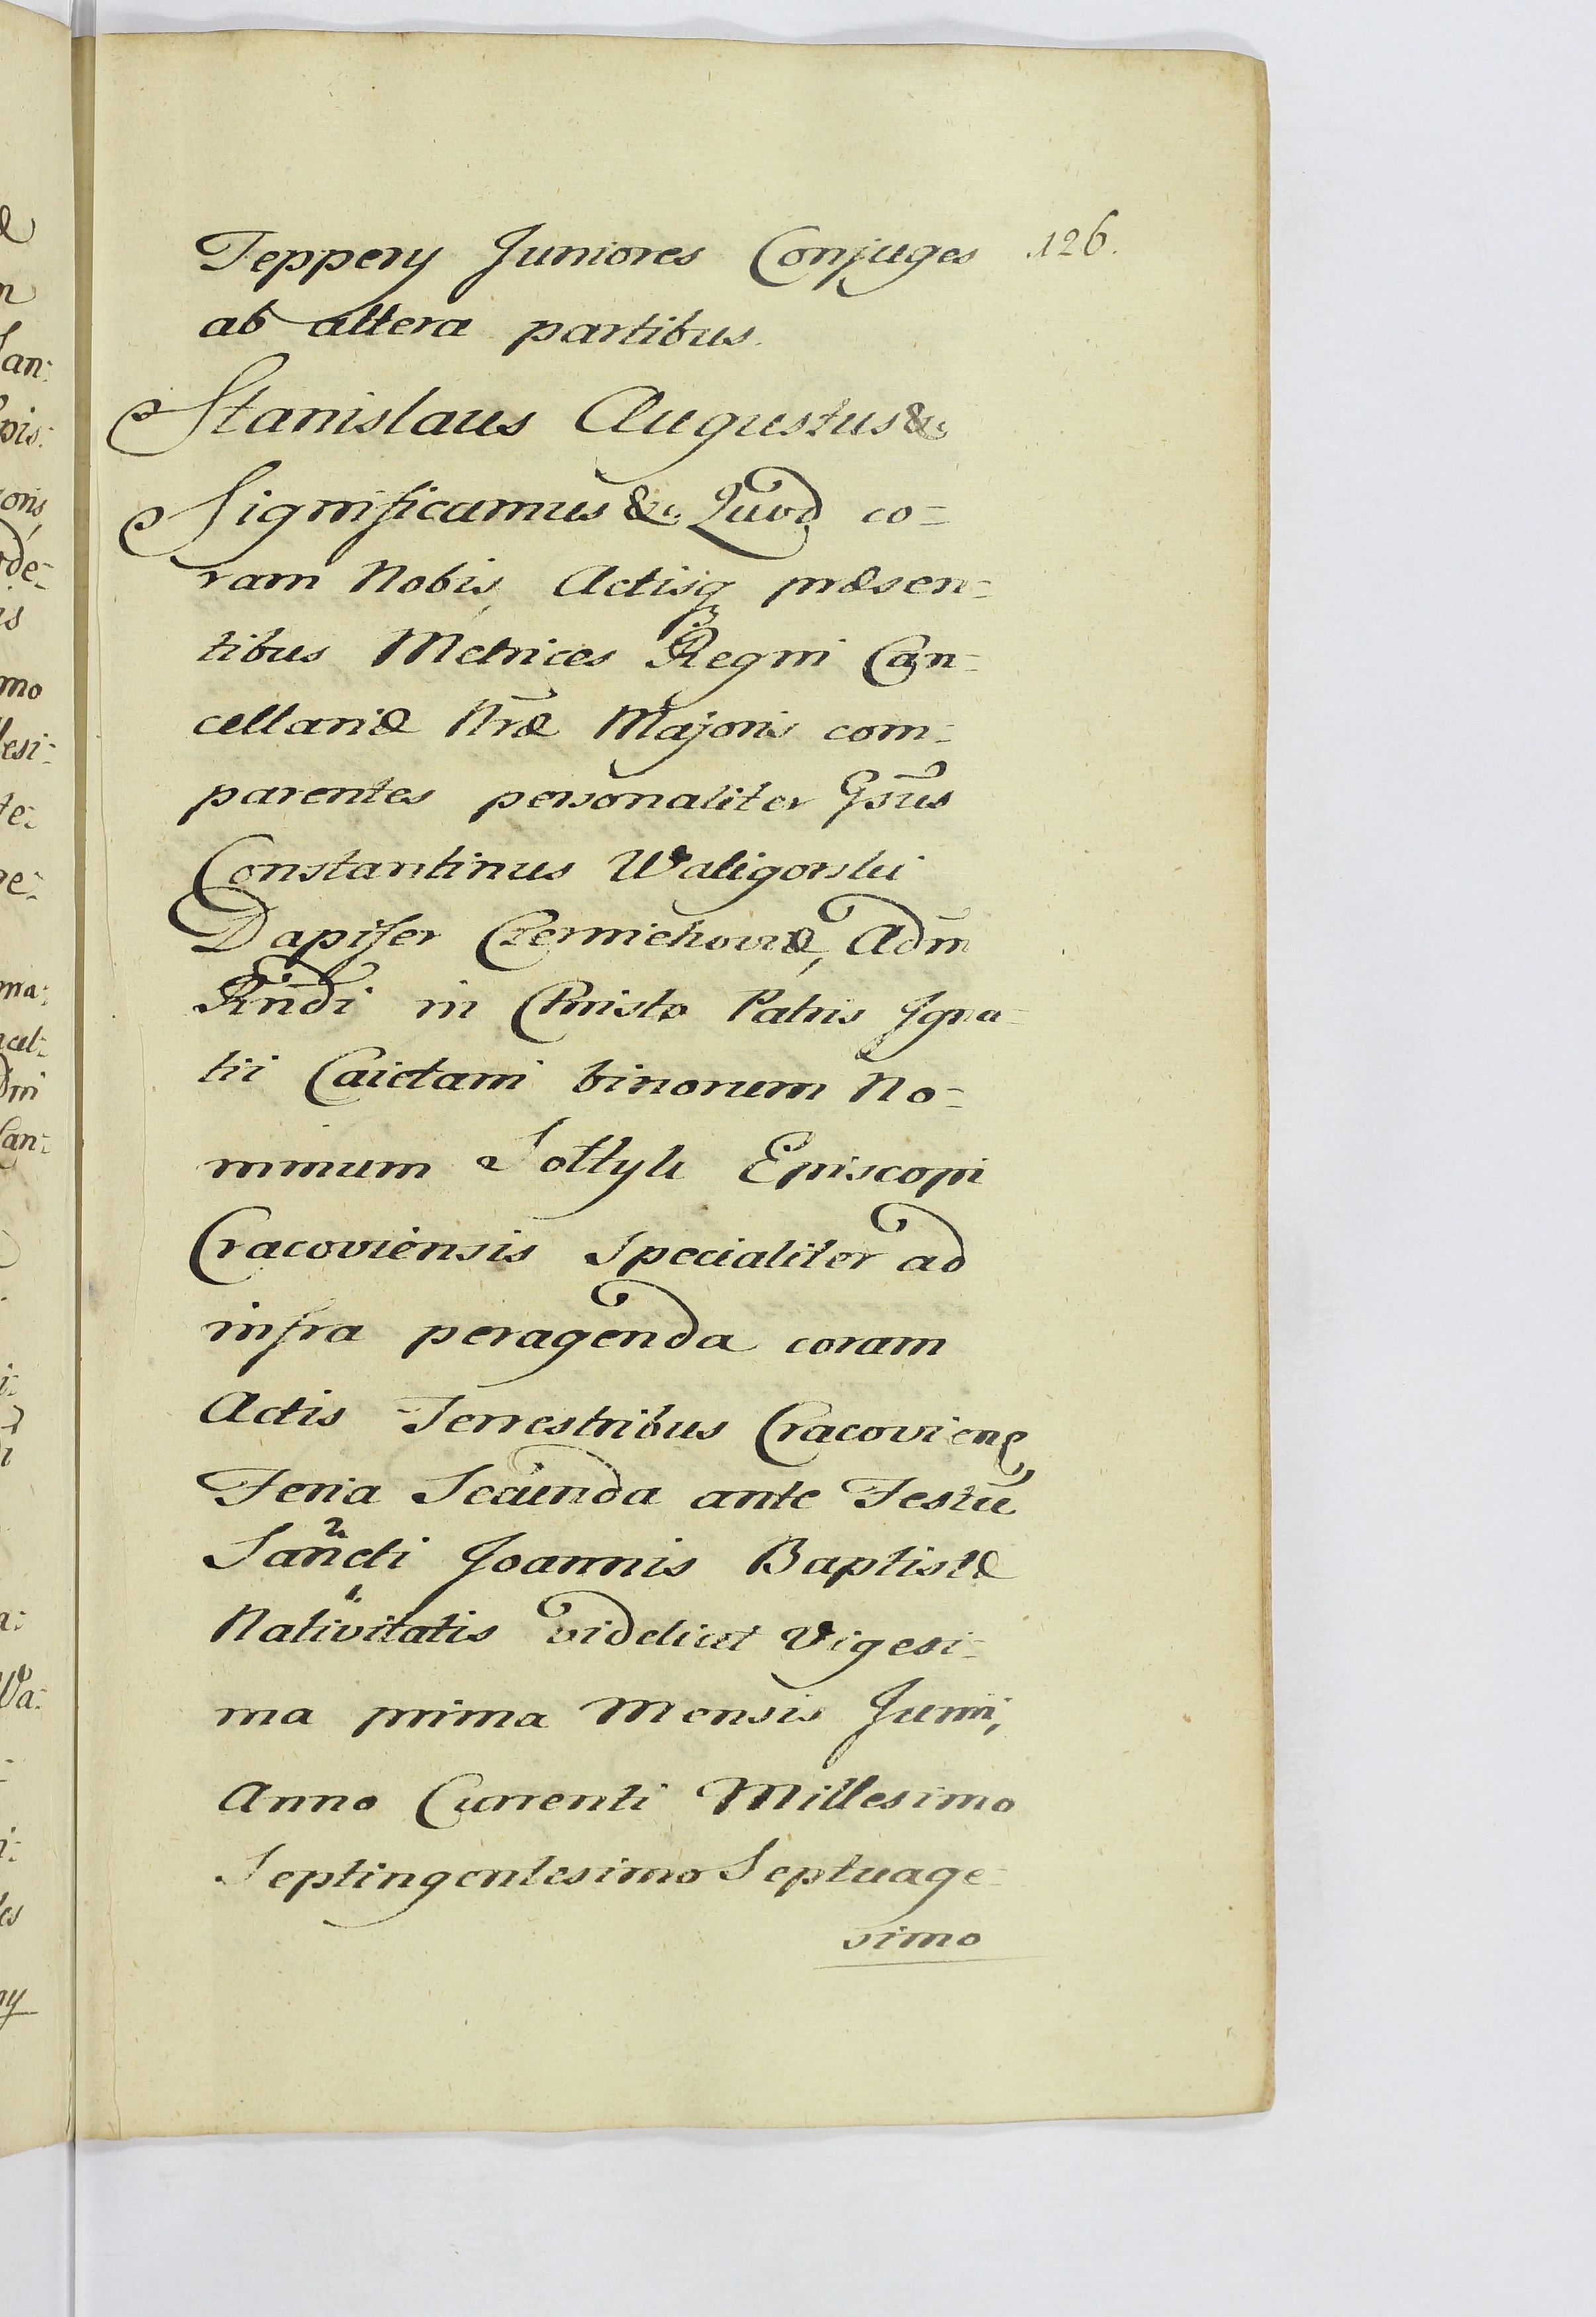 Teppery Juniores Conjuges 126.
ab altera partibus.
Stanislaus Augustus &c
Significamus &c. Quod co=
ram Nobis, Actisq præsen=
tibus Metrices Regni Can=
cellariæ Nr̃æ Majoris com=
parentes personaliter Gs̃us
Constantinus Waligorski
Dapifer Czerniehoviæ, Adm̃
Rñdi in Christo Patris Igna=
tii Caietani binorum No=
minum Sołtyk Episcopi
Cracoviensis Specialiter ad
infra peragenda coram
Actis Terrestribus Cracovien̄
Feria Secunda ante Festũ
Sancti 2. Joannis Baptistæ
Nativitatis 1. videlicet Vigesi=
ma prima Mensis Junii,
Anno Currenti Millesimo
Septingentesimo Septuage=
simo